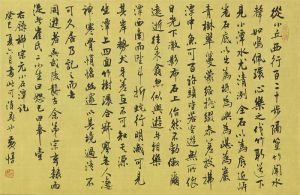 從小丘西行百二十步隔篁竹聞水
聲如鳴佩環心樂之伐竹取道下
見小潭水尤清冽全石以為底近岸
卷石底以出為坻為嶼為嵁為巖
青樹翠蔓蒙絡搖綴參差披拂
潭中魚可百許頭皆若空遊無所依
日光下澈影布石上佁然不動俶爾
遠逝往來翕忽似與遊者相樂
潭西南而望斗折蛇行明滅可見
其岸勢犬牙差互不可知其源
坐潭上四面竹樹環合寂寥無人淒
神寒骨悄愴幽邃以其境過清不
可久居乃記之而去
同遊者吳武陵龔古余弟宗玄隸而
從者崔氏二小生曰恕己曰奉壹
右錄柳宗元小石潭記